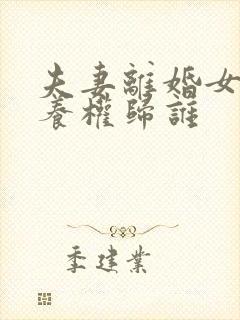 夫妻離婚女
養權歸誰
季建業